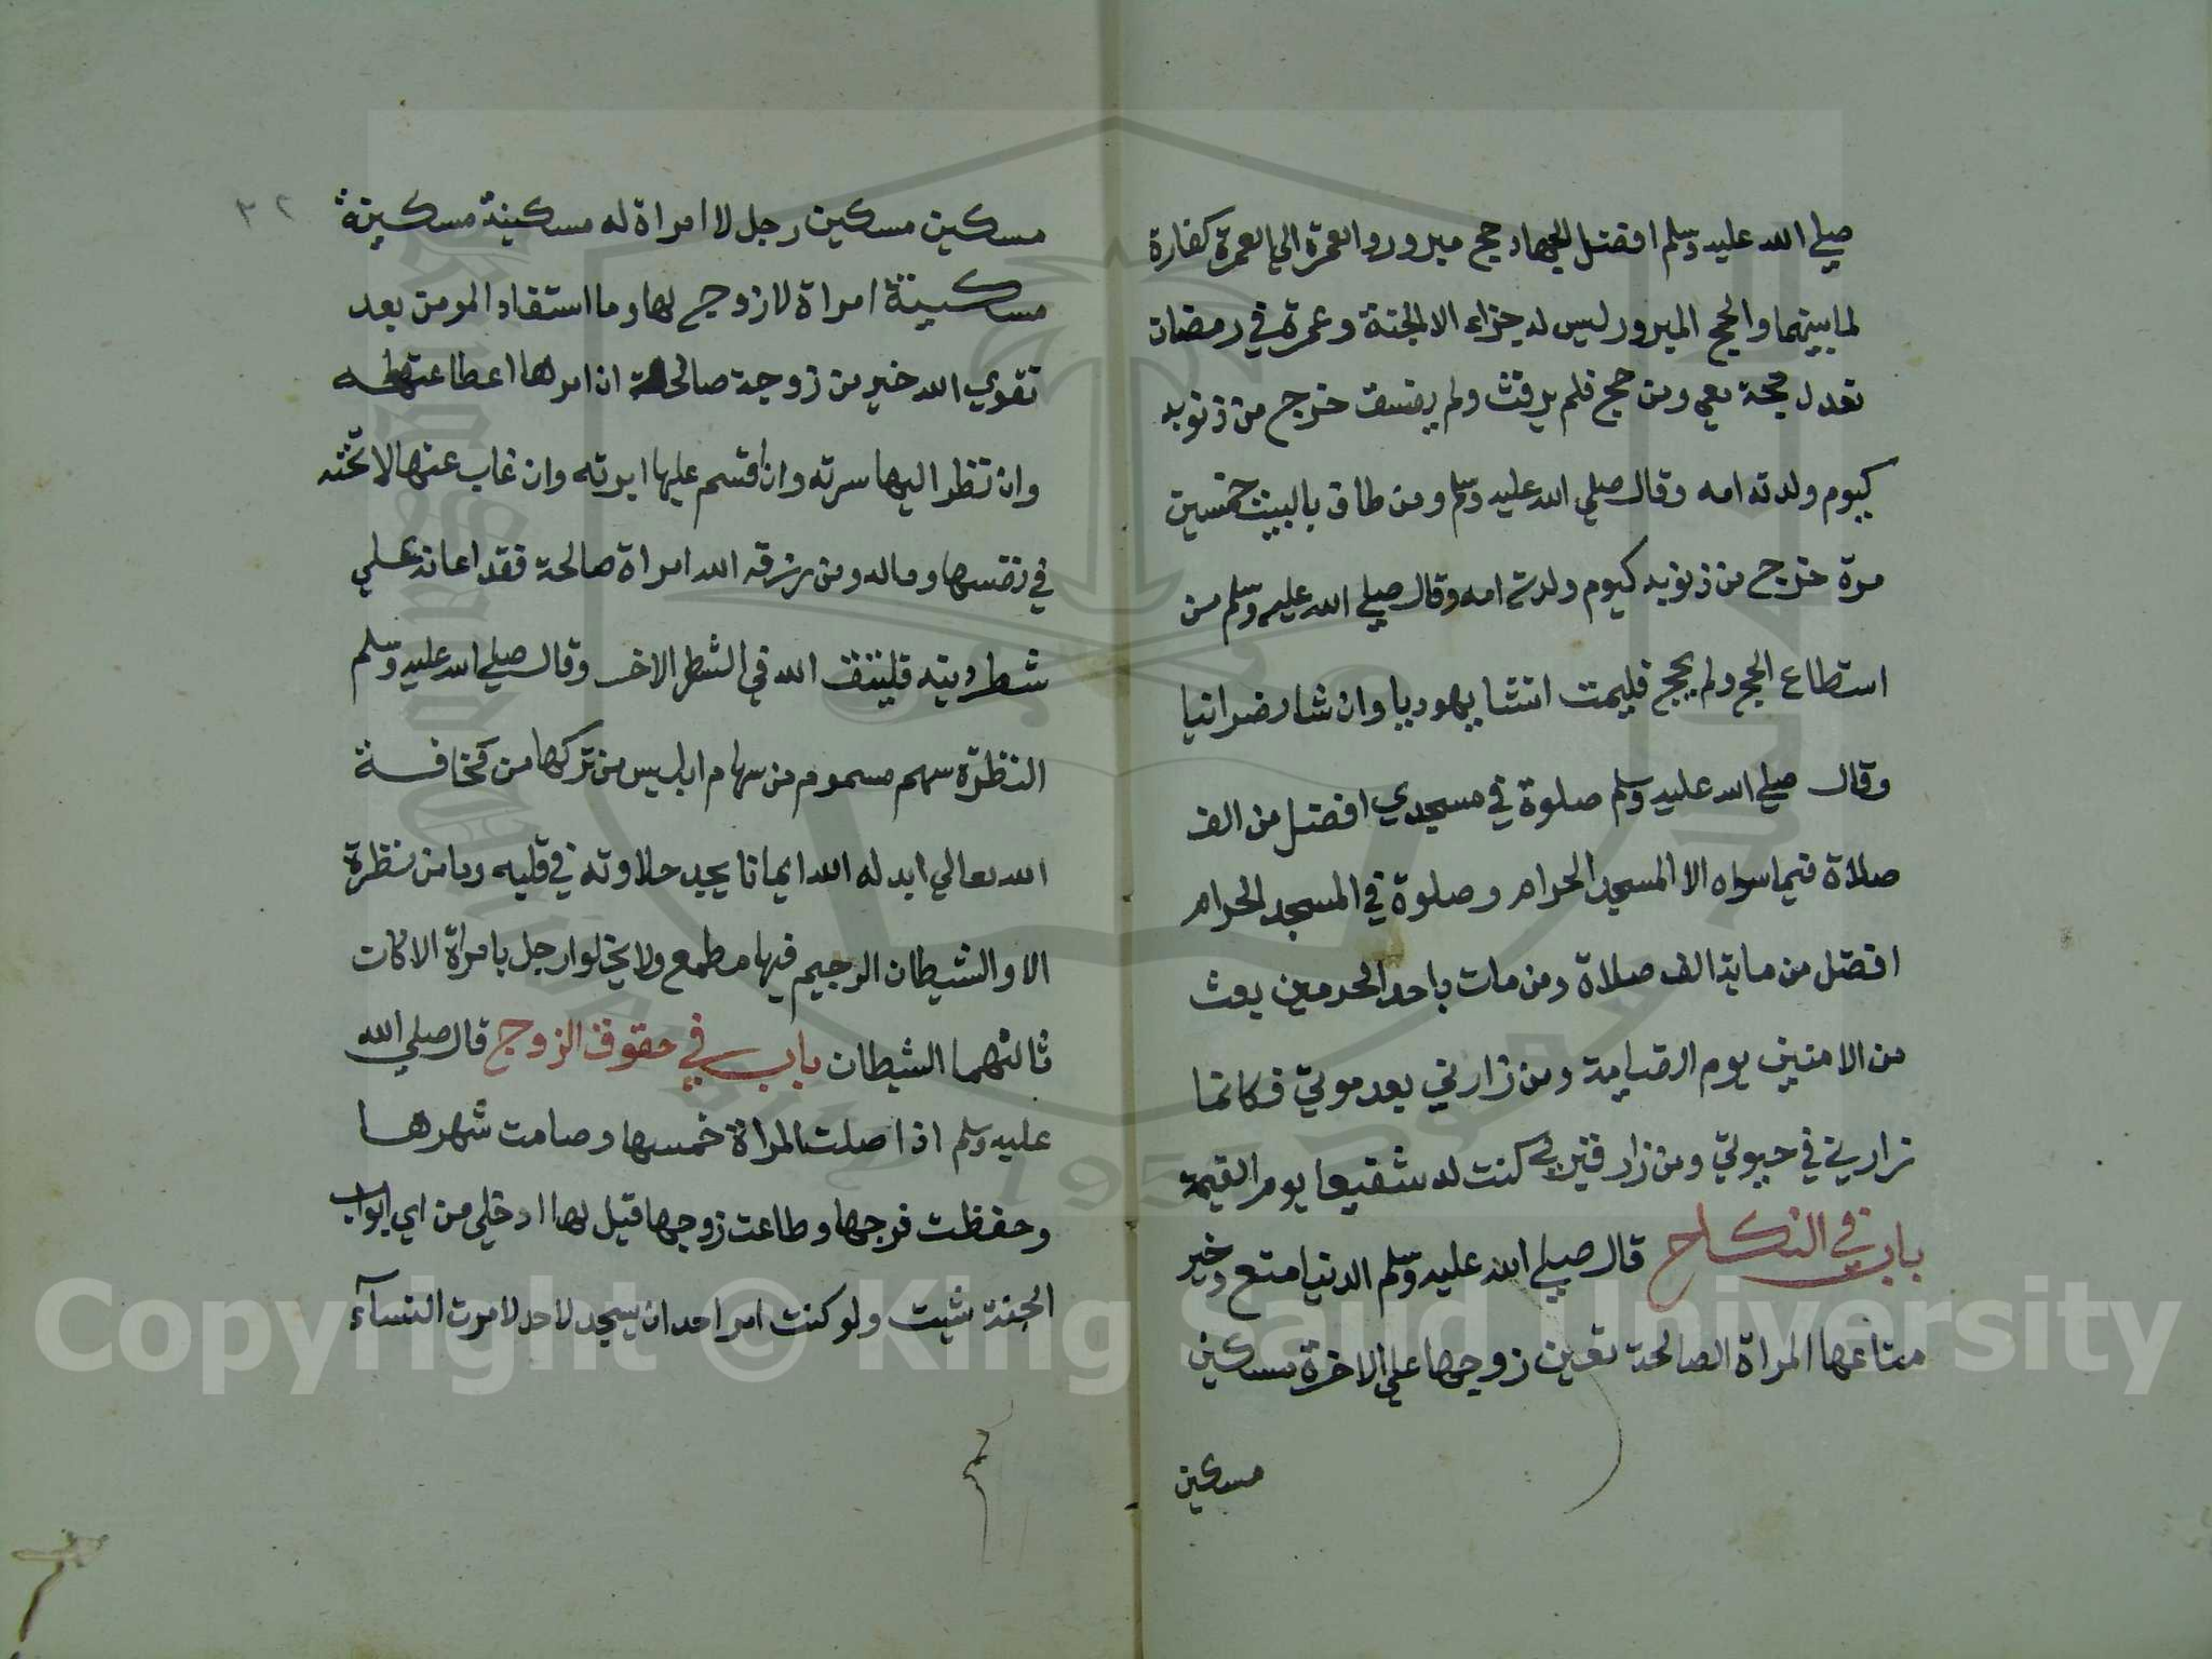 صلي الله عليه وسلم افضل الجهاد حج مبرور والعمرة الي العمرة كفارة
لما بينهما والحج المبرور ليس له جزاء الا الجنة وعمرة في رمضان
تعدل حجة معي ومن حج فلم يرفث ولم يفسق خرج من ذنوبه
كيوم ولدته امه وقال صلي الله عليه وسلم ومن طاف بالبيت خمسين
مرة خرج من ذنوبه كيوم ولدته امه وقال صلي الله عليه وسلم من
استطاع الحج ولم يحج فليمت انشا يهوديا وان شا نصرانيا
وقال صلي الله عليه وسلم صلوة في مسجدي افضل من الف
صلاة فيما سواه الا المسجد الحرام وصلوة في المسجد الحرام
افضل من ماية الف صلاة ومن مات باحد الحرمين بعث
من الامنين يوم القيامة ومن زارني بعد موتي فكانما
زارني في حيوتي ومن زار قبري كنت له شفيعا يوم القيمة
باب في النكاح قال صلي الله عليه وسلم الدنيا متع وخير
متاعها المراة الصالحة تعين زوجها علي الاخرة مسكين
مسكين
٣٢
مسكين مسكين رجل لا امراة له مسكينة مسكينة
مسكينة امراة لا زوج لها وما استفاد المومن بعد
تقوي الله خير من زوجة صالحة ان امرها اطاعته
وان نظر اليها سرته وان اقسم عليها ابرته وان غاب عنها لا تخنه
في نفسها وماله ومن رزقه الله امراة صالحة فقد اعانه علي
شطر دينه فليتق الله في الشطر الاخر وقال صلي الله عليه وسلم
النظرة سهم مسموم من سهام ابليس من تركها من مخافة
الله تعالي ابدله الله ايمانا يجد حلاوته في قلبه وما من نظرة
الا والشيطان الرجيم فيها مطمع ولا يخلوا رجل بامراة الا كان
ثالثهما الشيطان باب في حقوق الزوج قال صلي الله
عليه وسلم اذا صلت المراة خمسها وصامت شهرها
وحفظت فرجها وطاعت زوجها قيل لها ادخلي من اي ابواب
الجنة شيت ولو كنت امر احد ان يسجد لاحد لامرت النسآء
Copyright © King Saud University
1957